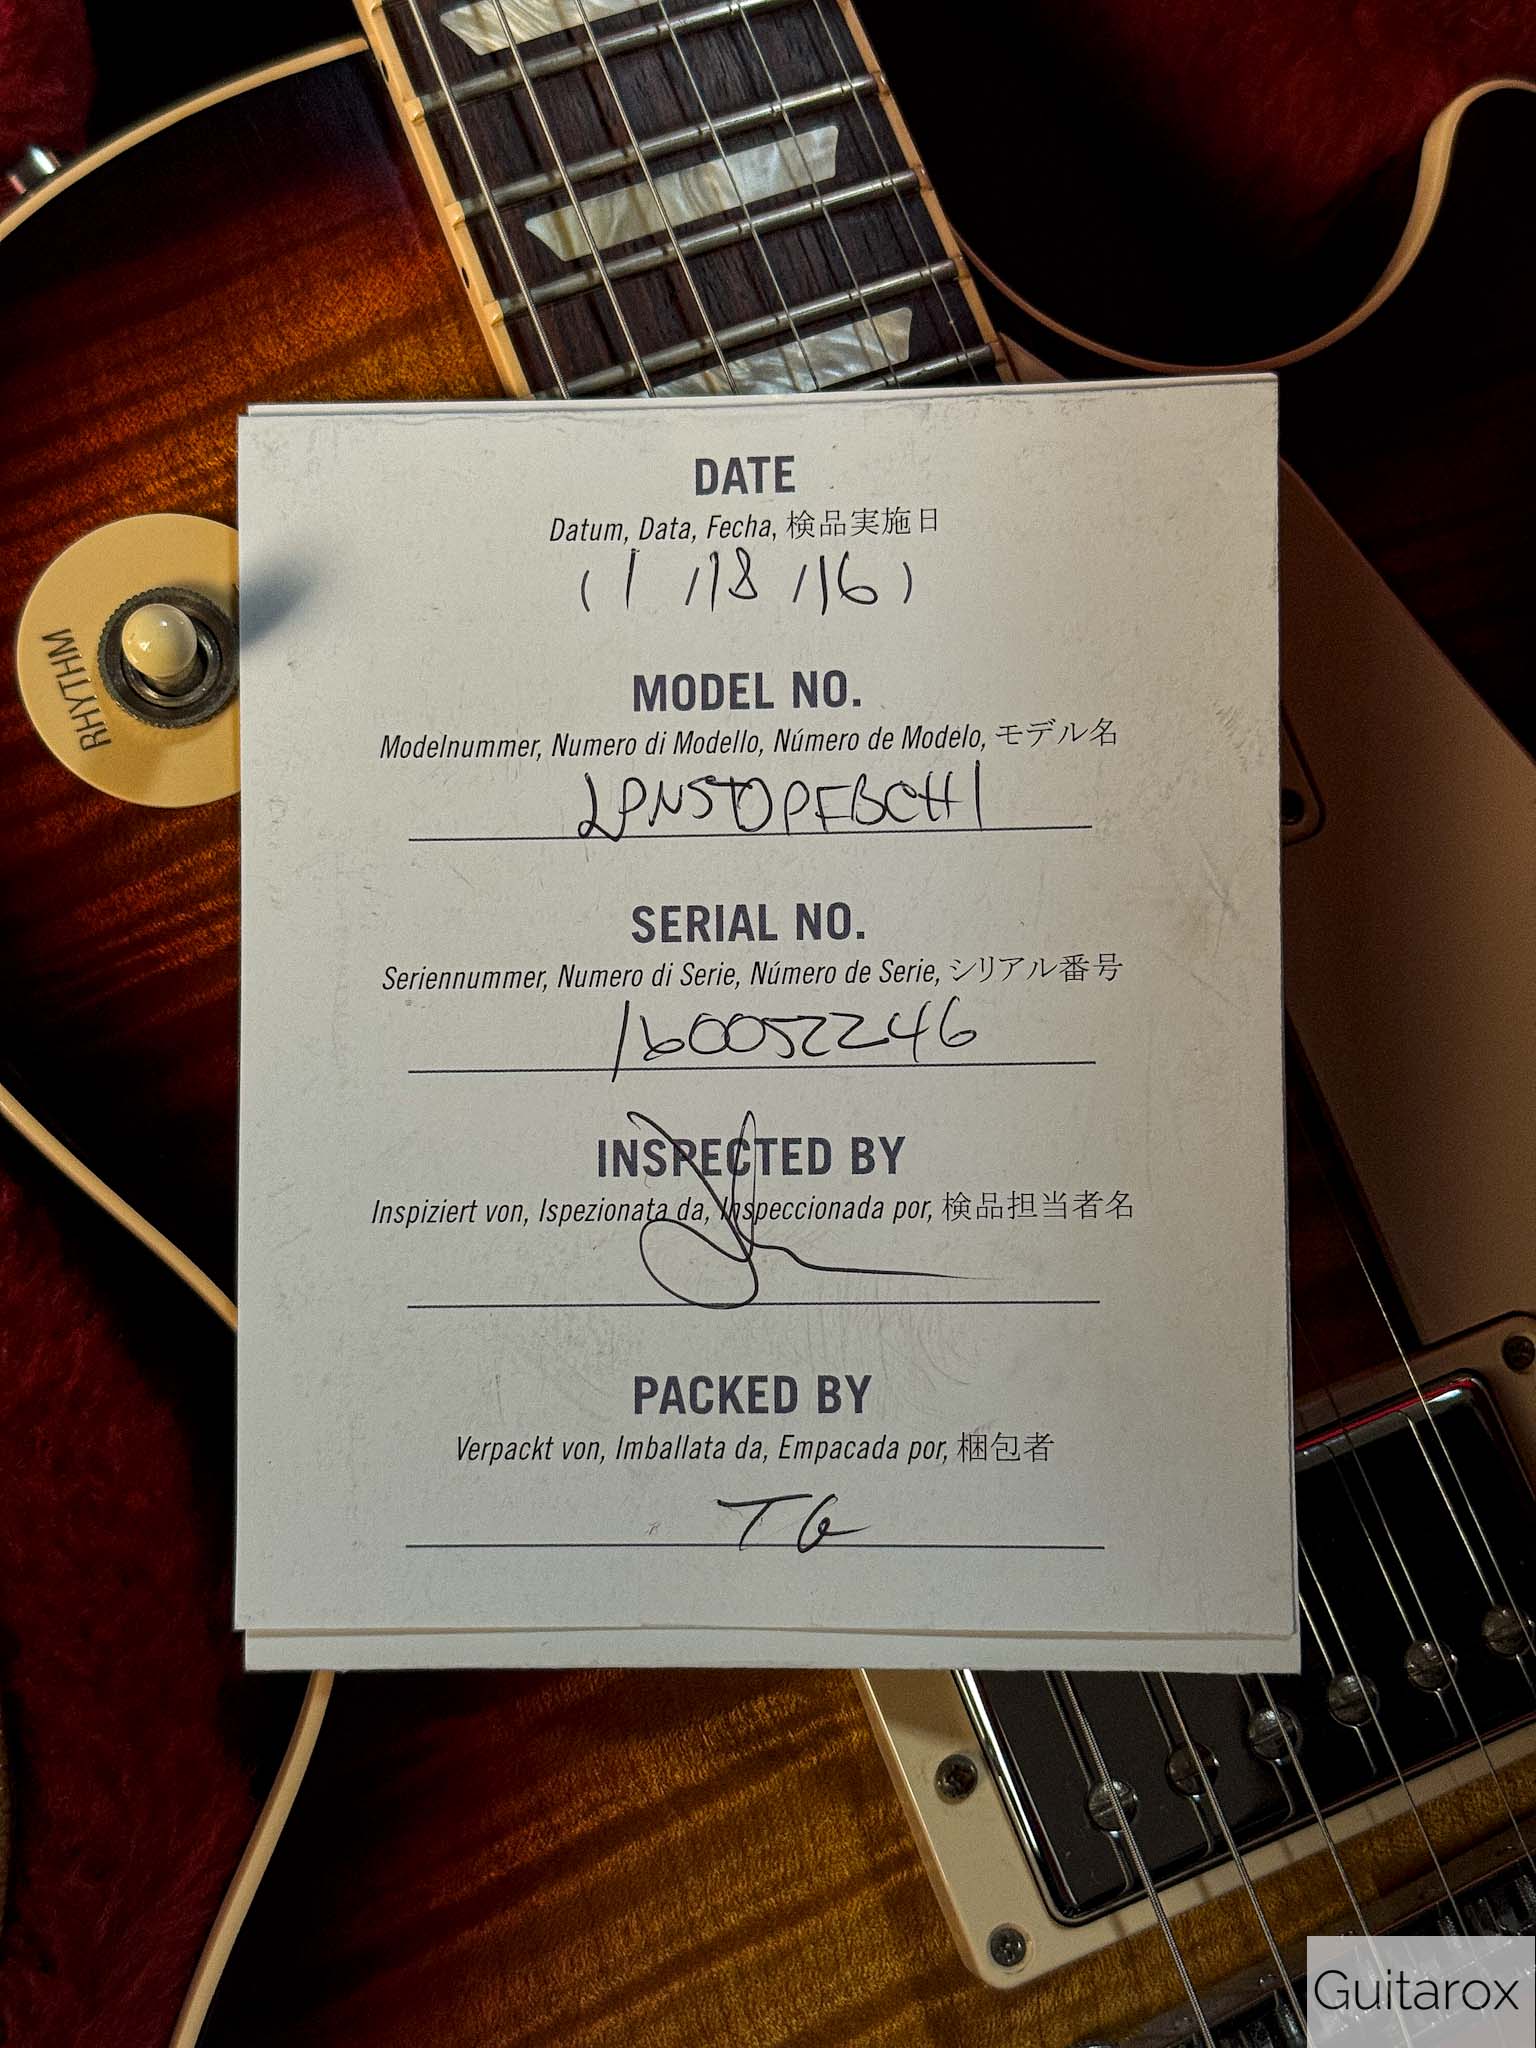 RHYTHM
DATE
Datum, Data, Fecha, 検品実施日
( 1 / 18 / 16 )
MODEL NO.
Modelnummer, Numero di Modello, Número de Modelo, モデル名
LPNSTDPFBCH1
SERIAL NO.
Seriennummer, Numero di Serie, Número de Serie, シリアル番号
160052246
INSPECTED BY
Inspiziert von, Ispezionata da, Inspeccionada por, 検品担当者名
PACKED BY
Verpackt von, Imballata da, Empacada por, 梱包者
TG
Guitarox